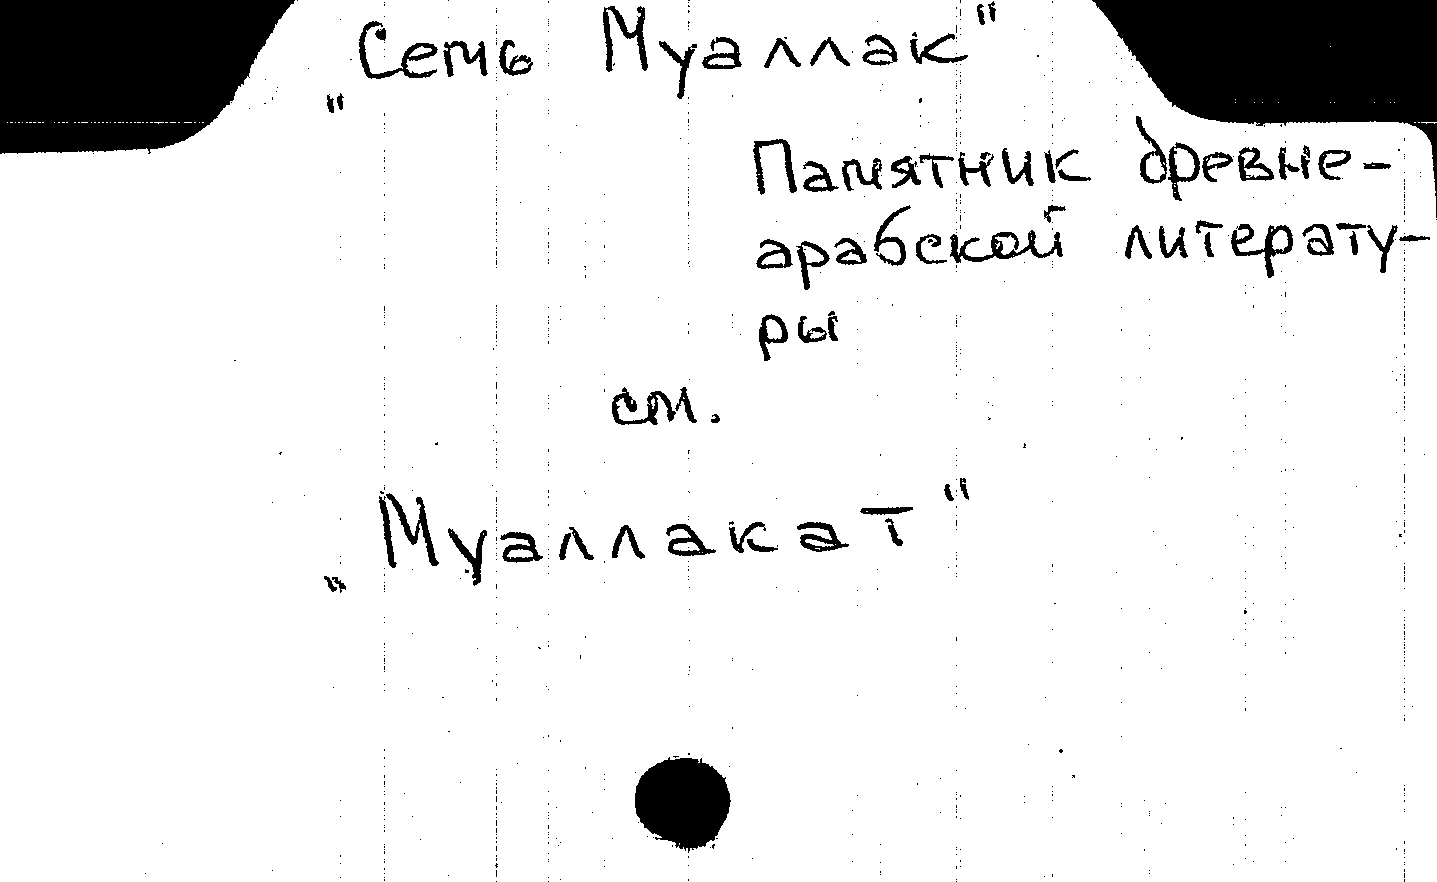 "Семь Муаллак"
Памятник древне-
арабской литерату-
ры
см.
"Муаллакат"